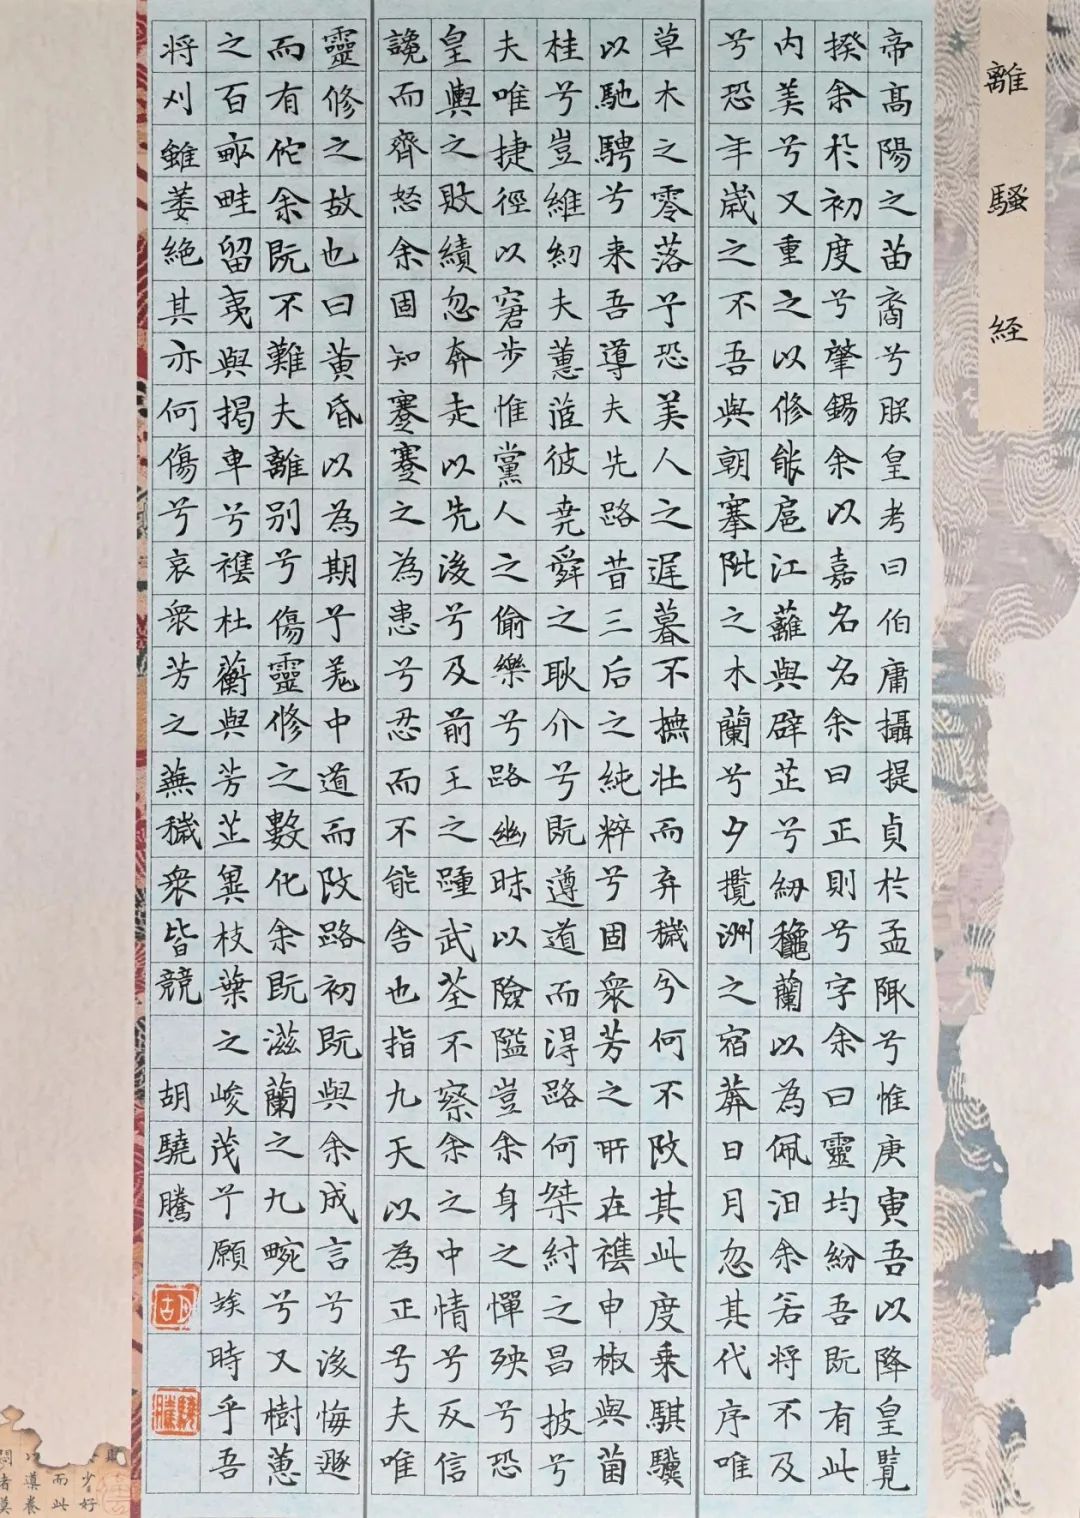 離騷経
帝高陽之苗裔兮朕皇考曰伯庸攝提貞於孟陬兮惟庚寅吾以降皇覧
揆余於初度兮肇錫余以嘉名名余曰正則兮字余曰靈均紛吾既有此
内美兮又重之以修能扈江蘺與辟芷兮紉龝蘭以為佩汨余若将不及
兮恐年歳之不吾與朝搴阰之木蘭兮夕攬洲之宿莽日月忽其代序唯
草木之零落兮恐美人之遅暮不撫壮而弃穢兮何不改其此度乗騏驥
以馳騁兮来吾導夫先路昔三后之純粹兮固衆芳之所在襍申椒與菌
桂兮豈維紉夫蕙茝彼尭舜之耿介兮既遵道而得路何桀紂之昌披兮
夫唯捷徑以窘步惟黨人之偷樂兮路幽昧以險隘豈余身之憚殃兮恐
皇輿之敗績忽奔走以先後兮及前王之踵武荃不察余之中情兮反信
讒而齊怒余固知謇謇之為患兮忍而不能舎也指九天以為正兮夫唯
靈修之故也曰黄昏以為期兮羌中道而改路初既與余成言兮後悔遯
而有佗余既不難夫離別兮傷靈修之數化余既滋蘭之九畹兮又樹蕙
之百畝畦留夷與揭車兮襍杜蘅與芳芷冀枝葉之峻茂兮願竢時乎吾
将刈雖萎絶其亦何傷兮哀衆芳之蕪穢衆皆競 胡驍騰